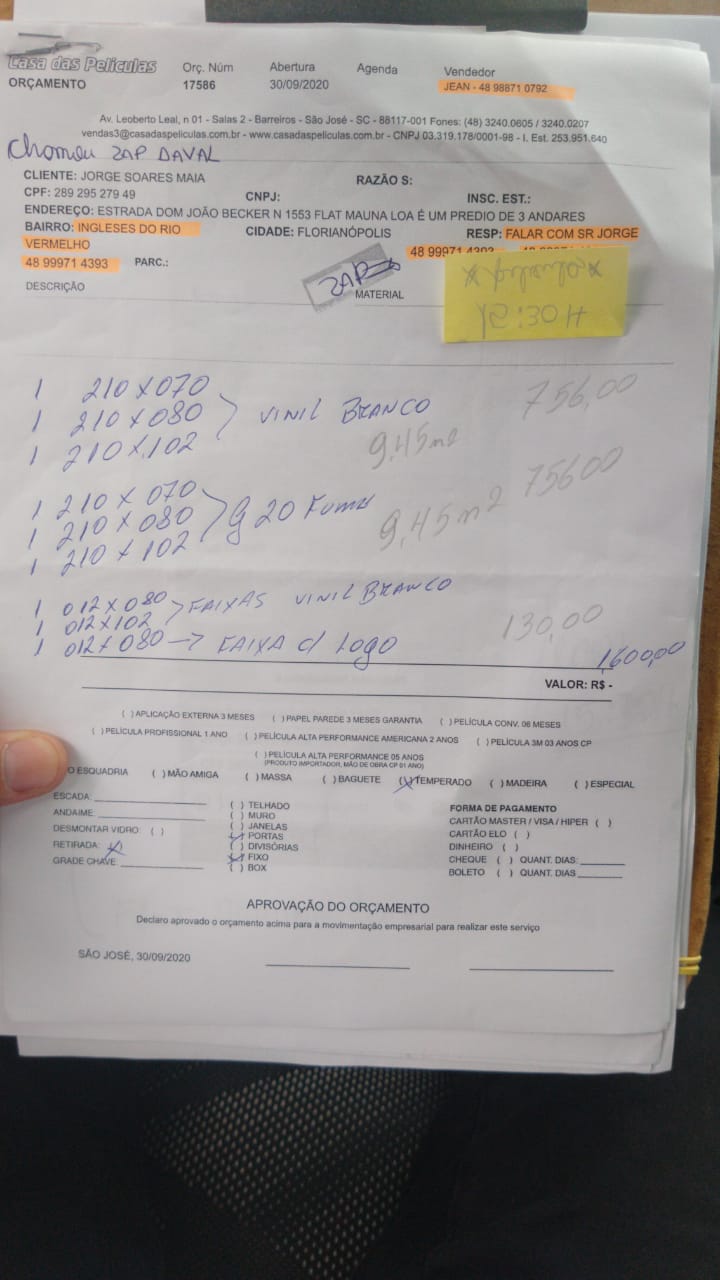 Casa das Películas
ORÇAMENTO
Orç. Núm
17586
Abertura
30/09/2020
Agenda
Vendedor
JEAN - 48 98871 0792
Av. Leoberto Leal, n 01 - Salas 2 - Barreiros - São José - SC - 88117-001 Fones: (48) 3240.0605 / 3240.0207
vendas3@casadaspeliculas.com.br - www.casadaspeliculas.com.br - CNPJ 03.319.178/0001-98 - I. Est. 253.951.640
Chamou ZAP DAVAL
CLIENTE: JORGE SOARES MAIA RAZÃO S:
CPF: 289 295 279 49 CNPJ: INSC. EST.:
ENDEREÇO: ESTRADA DOM JOÃO BECKER N 1553 FLAT MAUNA LOA É UM PREDIO DE 3 ANDARES
BAIRRO: INGLESES DO RIO CIDADE: FLORIANÓPOLIS RESP: FALAR COM SR JORGE
VERMELHO
48 99971 4393
48 99971 4393 PARC.:
ZAP
DESCRIÇÃO MATERIAL
15:30H
1 210 X 070
1 210 X 080 VINIL BRANCO 756,00
1 210 X 102 9,45 m2
1 210 X 070
1 210 X 080 G 20 Fume 9,45 m2 75600
1 210 X 102
1 012 X 080 FAIXAS VINIL BRANCO
1 012 X 102
1 012 X 080 → FAIXA c/ Logo 130,00
1,600,00
VALOR: R$ -
( ) APLICAÇÃO EXTERNA 3 MESES ( ) PAPEL PAREDE 3 MESES GARANTIA ( ) PELÍCULA CONV. 06 MESES
( ) PELÍCULA PROFISSIONAL 1 ANO ( ) PELÍCULA ALTA PERFORMANCE AMERICANA 2 ANOS ( ) PELÍCULA 3M 03 ANOS CP
( ) PELÍCULA ALTA PERFORMANCE 05 ANOS
(PRODUTO IMPORTADOR, MÃO DE OBRA CP 01 ANO)
O ESQUADRIA ( ) MÃO AMIGA ( ) MASSA ( ) BAGUETE (X) TEMPERADO ( ) MADEIRA ( ) ESPECIAL
ESCADA:
ANDAIME:
DESMONTAR VIDRO: ( )
RETIRADA: (X)
GRADE CHAVE:
( ) TELHADO
( ) MURO
( ) JANELAS
(X) PORTAS
( ) DIVISÓRIAS
(X) FIXO
( ) BOX
FORMA DE PAGAMENTO
CARTÃO MASTER / VISA / HIPER ( )
CARTÃO ELO ( )
DINHEIRO ( )
CHEQUE ( ) QUANT. DIAS:
BOLETO ( ) QUANT. DIAS
APROVAÇÃO DO ORÇAMENTO
Declaro aprovado o orçamento acima para a movimentação empresarial para realizar este serviço
SÃO JOSÉ, 30/09/2020